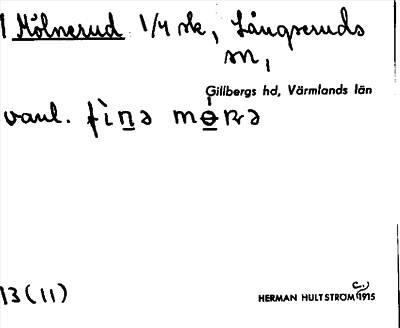 Mölnerud 1/4 sk, Långseruds
sn,
Gillbergs hd, Värmlands län
vanl.
13 (11)
HERMAN HULTSTRÖM (c.) 1915